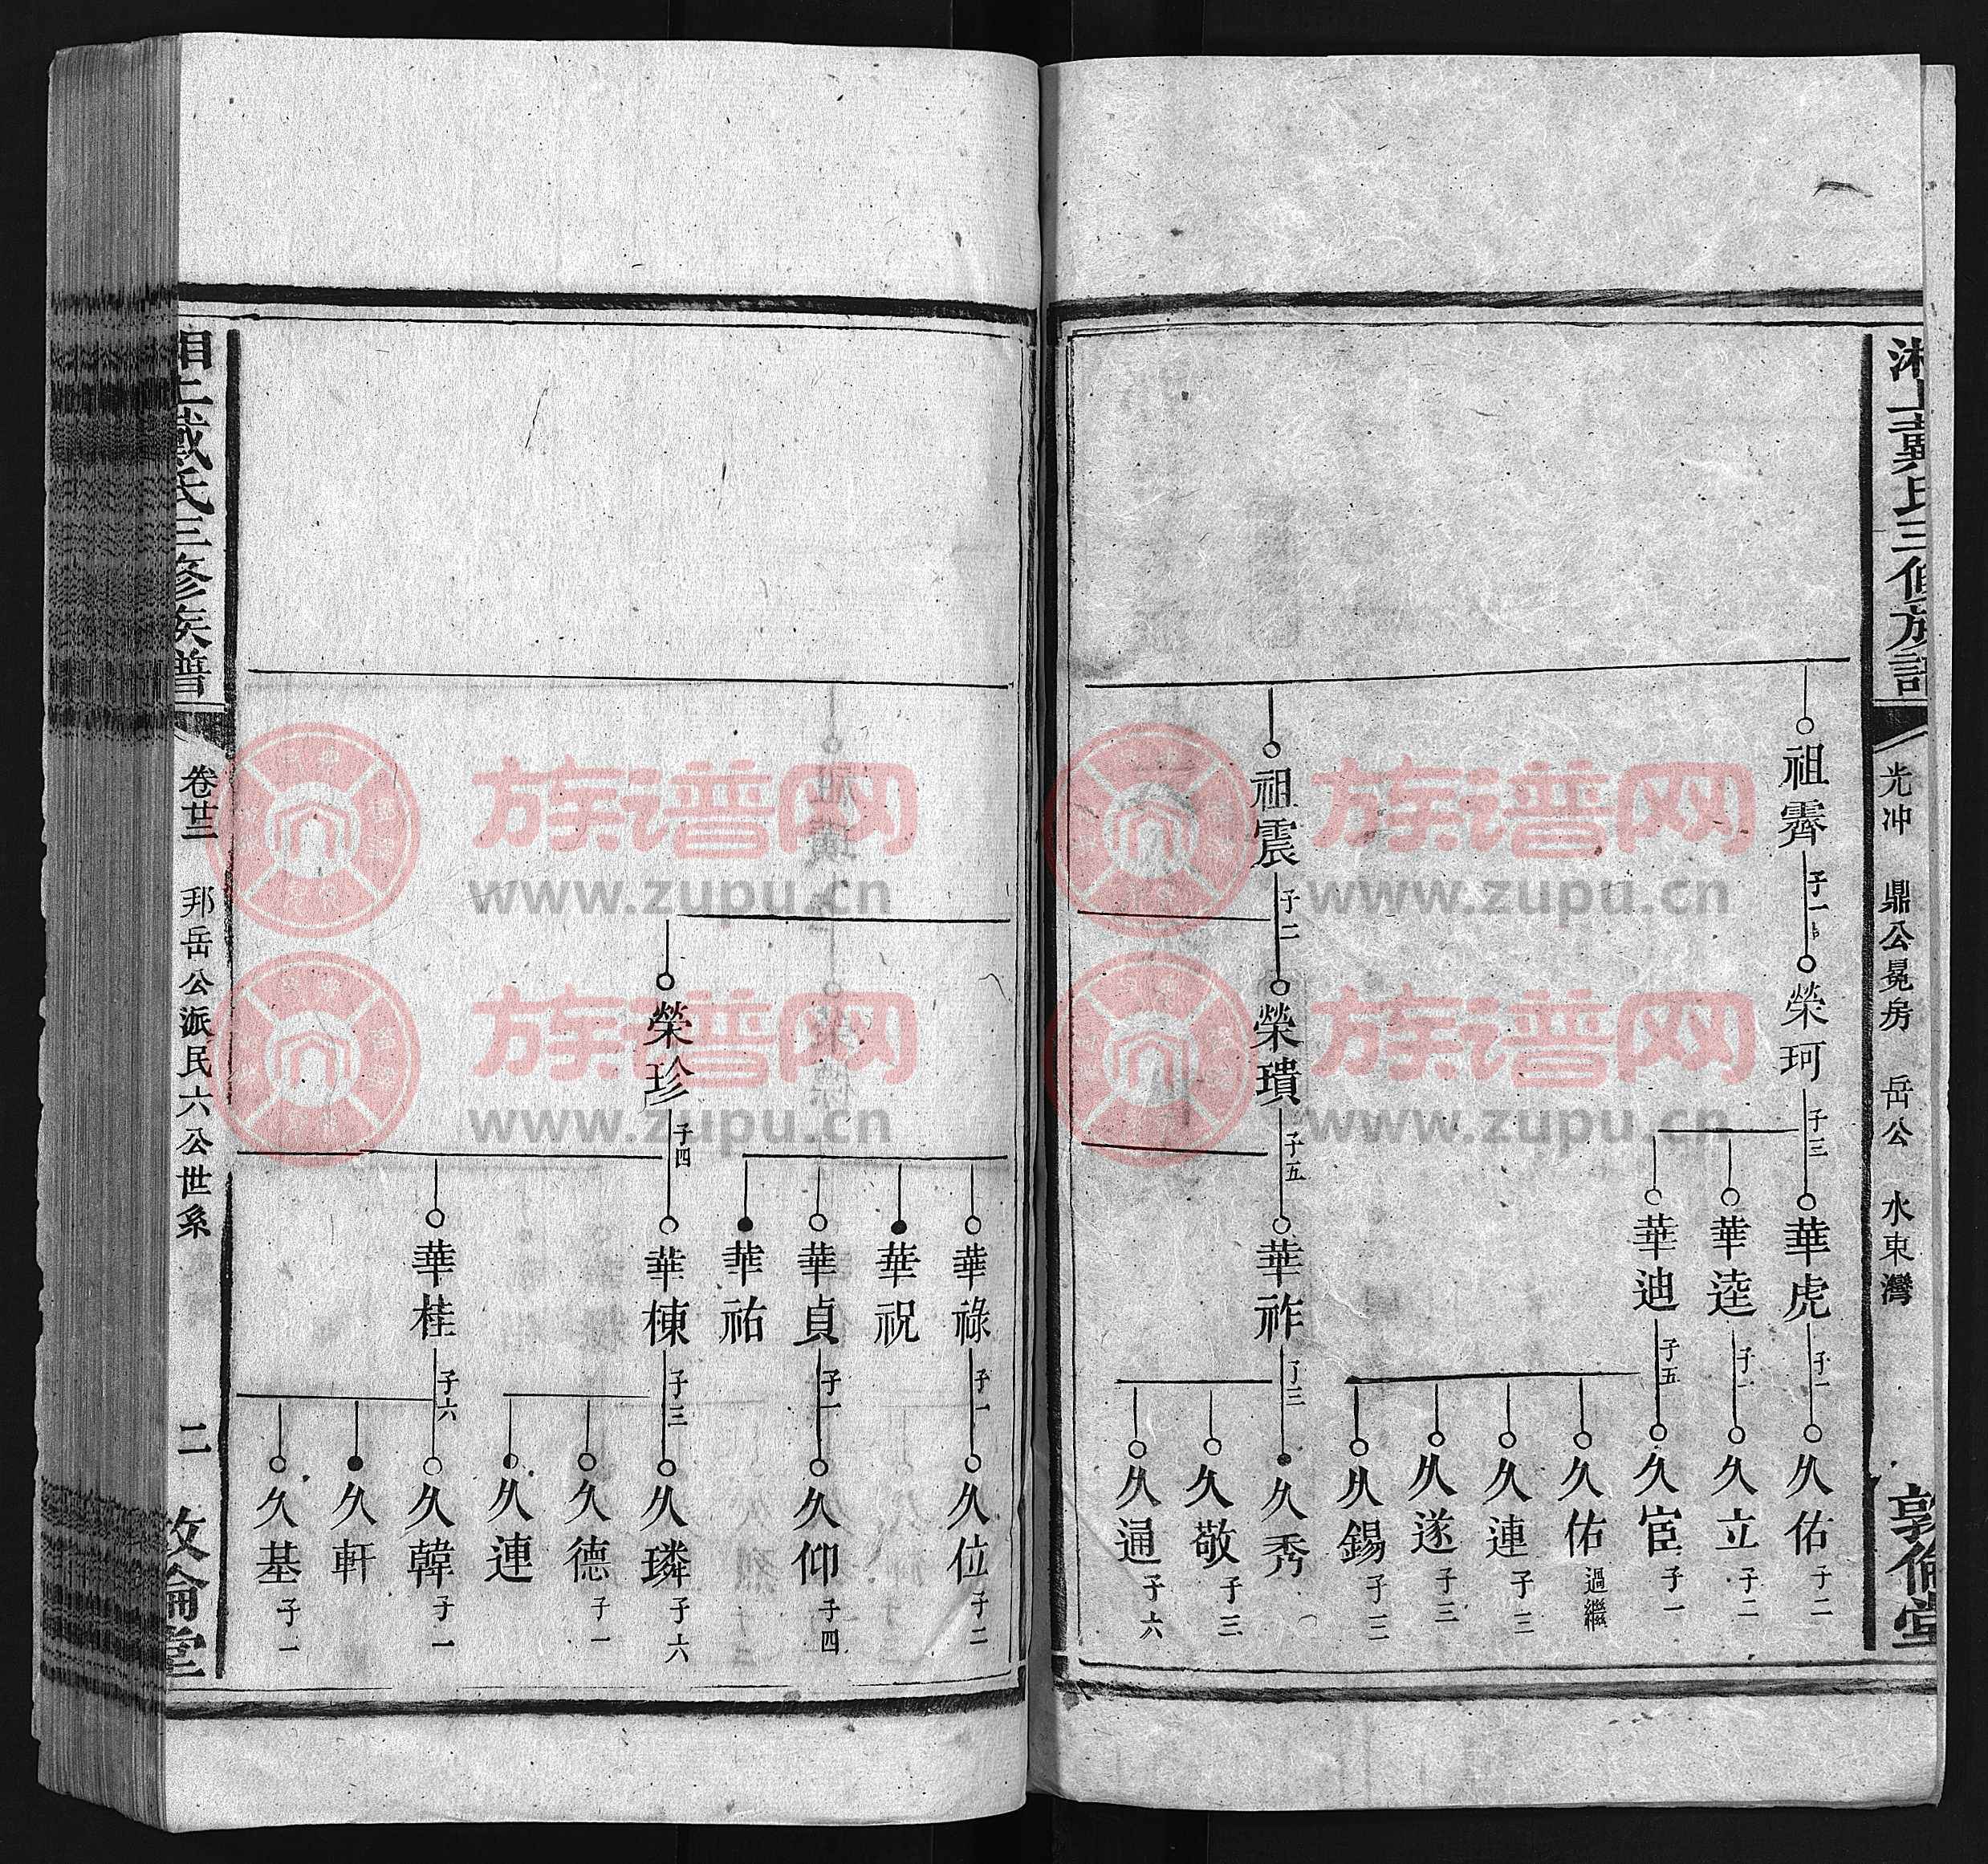 湘上戴氏三修族譜
光冲 鼎公晃房 岳公 水東灣
敦倫堂
祖霽 子一
榮珂 子三
華虎 子一
久佑 子二
華逵 子一
久立 子二
華迪 子五
久宦 子一
久佑 過繼
久連 子三
久遂 子三
久錫 子三
祖震 子二
榮璝 子五
華祚 子三
久秀
久敬 子三
久通 子六
華祿 子一
久位 子二
華祝
華貞 子一
久仰 子四
華祐
榮珍 子四
華棟 子三
久璘 子六
久德 子一
久連
華桂 子六
久韓 子一
久軒
久基 子一
湘上戴氏三修族譜
卷廿三 邦岳公派民六公世系
二
敦倫堂
族谱网
www.zupu.cn
族谱网
www.zupu.cn
族谱网
www.zupu.cn
族谱网
www.zupu.cn